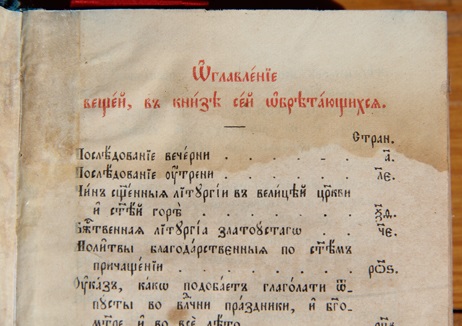 Ѡ҆главле́нїе
веще́й, въ кни́зѣ се́й ѡ҆брѣта́ющихсѧ.
Стран.
Послѣ́дованїе вече́рни . . . . . . а҃.
Послѣ́дованїе ᲂу҆́трени . . . . . . ле҃.
Чи́нъ сщ҃е́нныѧ лїтꙋргі́и въ вели́цѣй цр҃кви
и҆ ст҃ѣ́й горѣ̀ . . . . . .
Бж҃е́ственнаѧ лїтꙋргі́а златоꙋ́стагѡ . . че҃.
Моли́твы благода́рственныѧ по ст҃ѣ́мъ
причаще́нїи . . . . . . . рѻ҃ѕ.
Оу҆ка́зъ, ка́кѡ подоба́етъ глаго́лати ѿ-
пꙋ́сты во влⷣчни пра́здники, и҆ бг҃о-
и҆ во всѐ лѣ́то